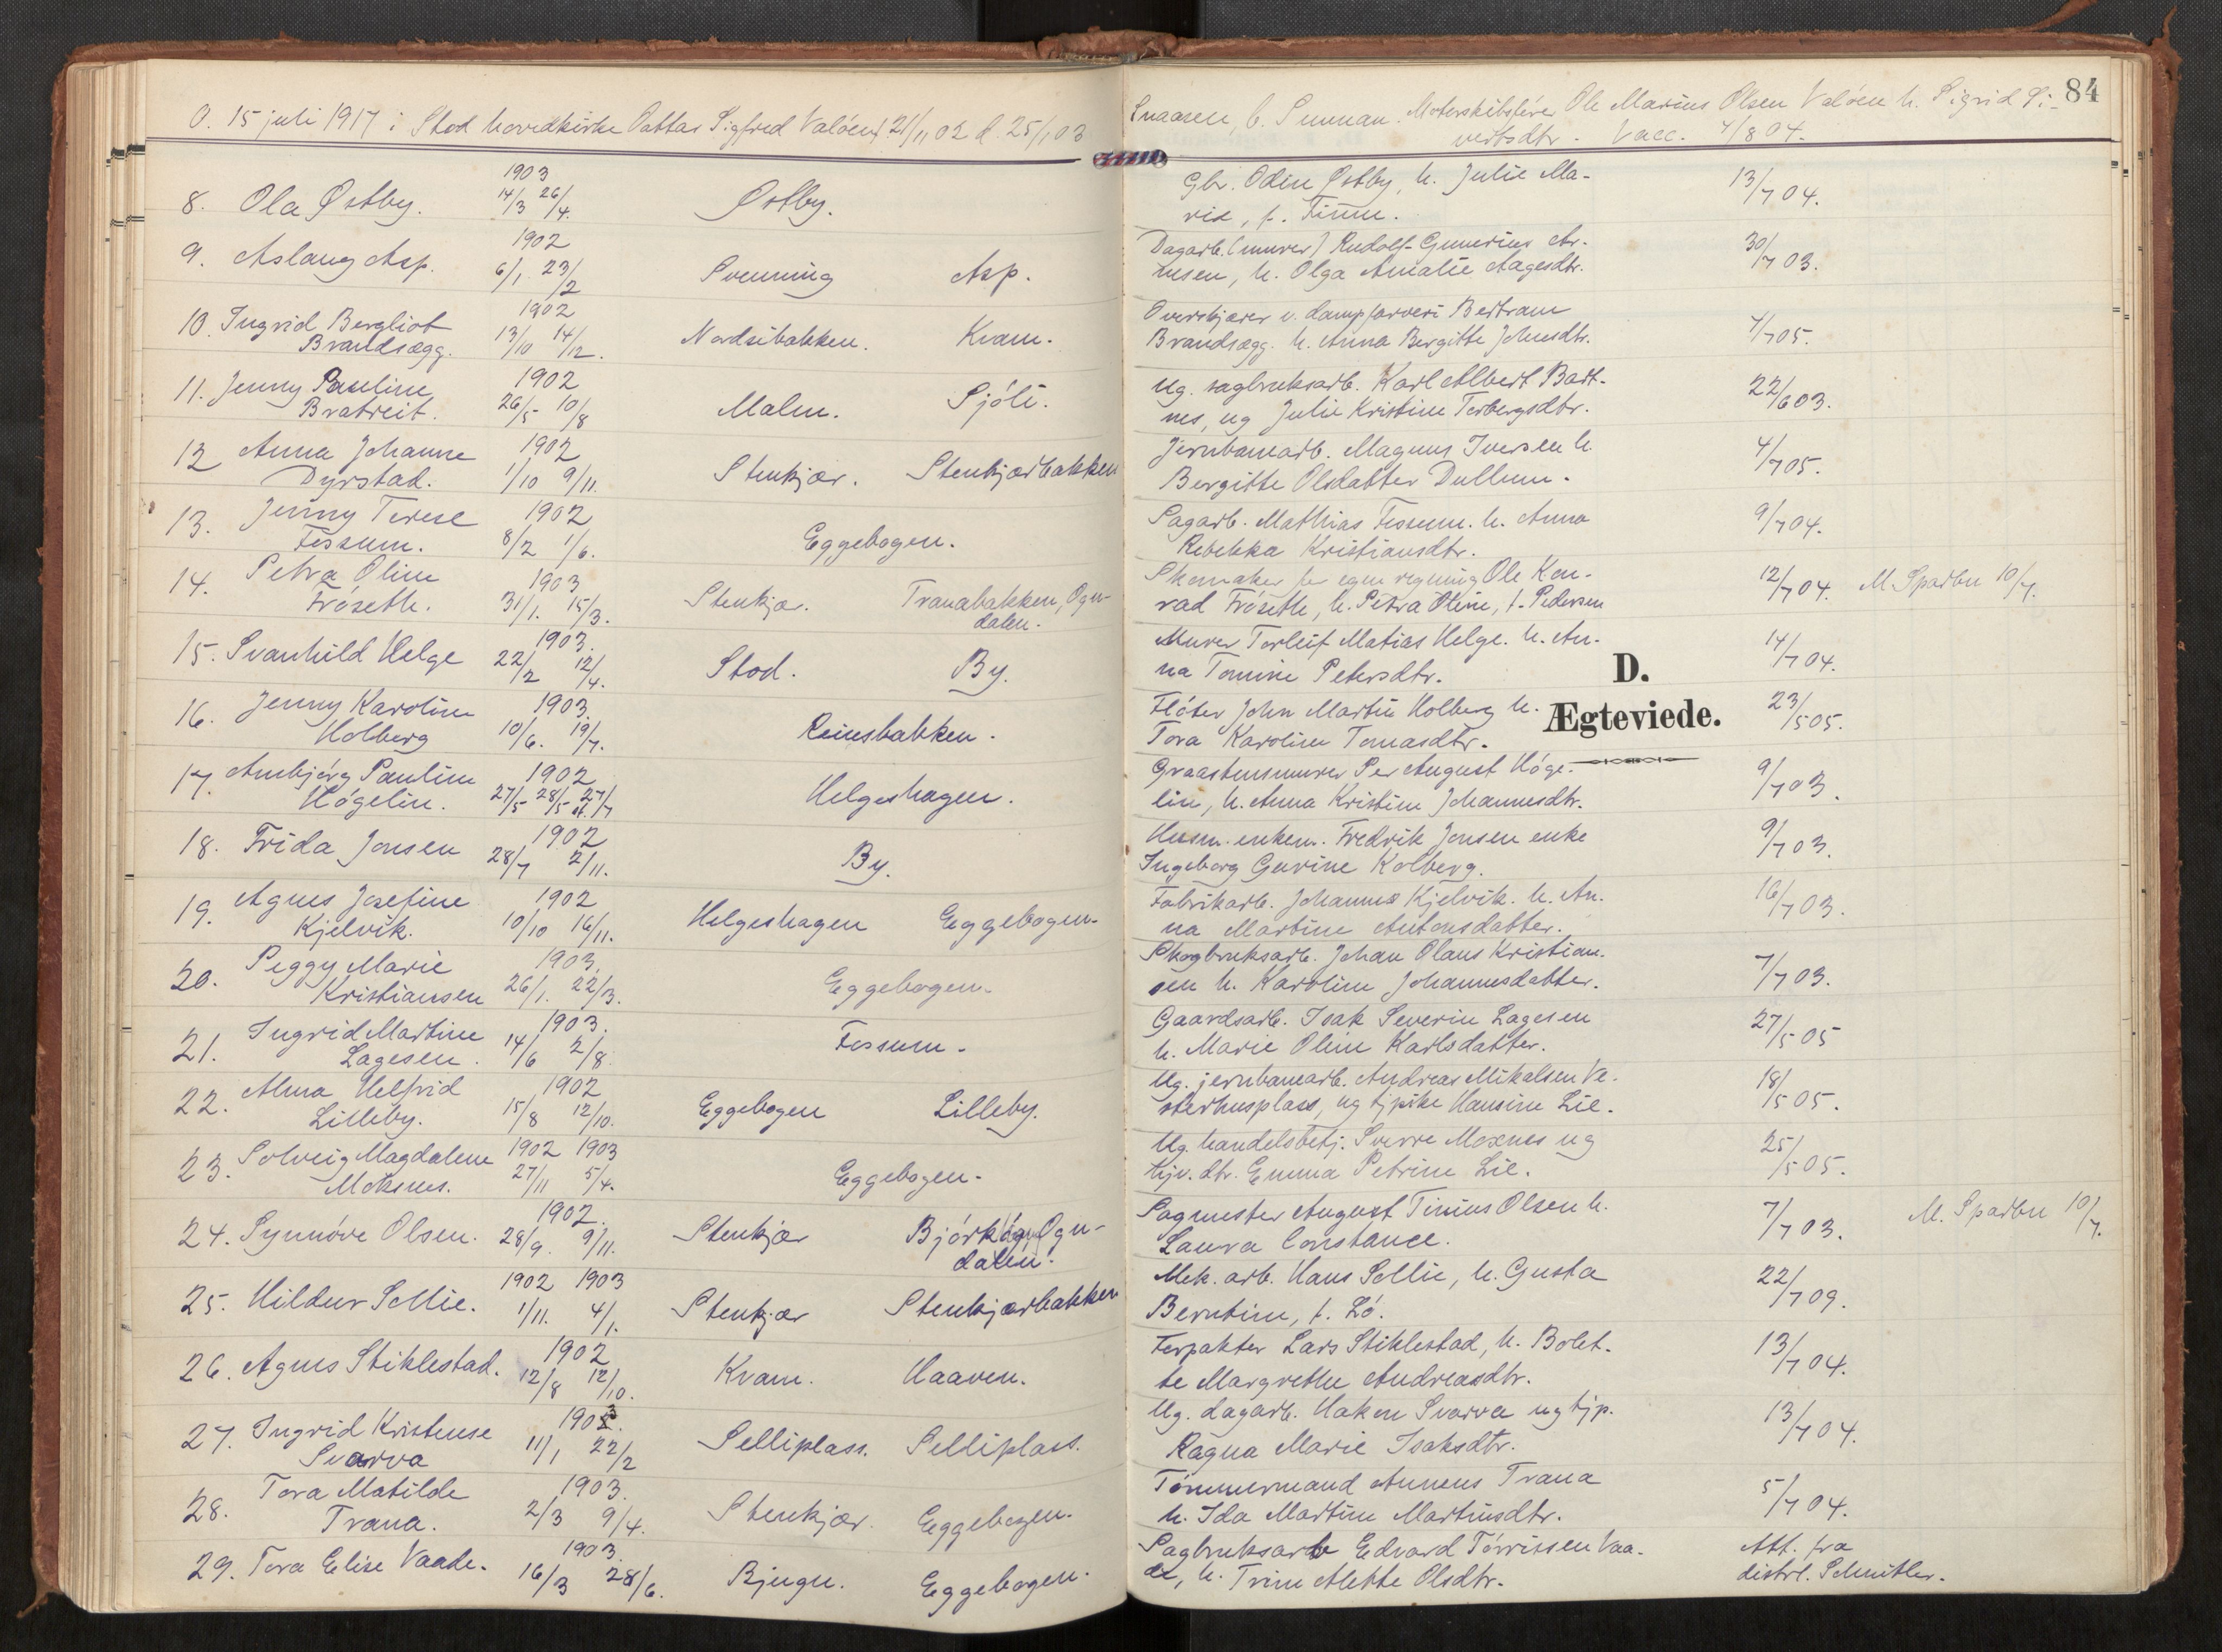 84
O. 15 juli 1917 i Stod hovedkirke Sigfred Valöen f. 21/11 02 d. 25/1 03
Snaasen, b. Sunnan. Motorskibsförer Ole Marius Olsen Valöen h. Sigrid Si-
vertsdtr. Vacc. 4/8 04.
8. Ola Østby. 1903 14/3 26/4. Østby. Gbr. Odin Østby, h. Julie Ma- 13/7 04.
rie, f. Finne.
9. Aslaug Asp. 1902 6/1 23/2 Svenning Asp. Dagarb. (murer) Rudolf Gunerius Ar- 30/7 03.
nesen, h. Olga Amalie Aagesdtr.
10. Ingrid Bergliot 1902 Overskjærer v. dampfarveri Bertram
Brandsegg. 13/10 14/12. Nordsibakken. Kvam. Brandsegg. h. Anna Bergitte Johnsdtr. 4/7 05.
11. Jenny Pauline 1902 Ug. sagbruksarb. Karl Albert Bart- 22/6 03.
Bratreit. 26/5 10/8 Malm. Sjöli. nes, ug Julie Kristine Torbergsdtr.
12 Anna Johanne 1902 Jernbanearb. Magnus Iversen h. 4/7 05.
Dyrstad. 1/10 9/11. Stenkjær. Stenkjærbakken Bergitte Olsdatter Dullum.
13. Jenny Terese 1902 Sagarb. Mathias Fossum. h. Anna 9/7 04.
Fossum. 8/2 1/6. Eggebogen. Rebekka Kristiansdtr.
14. Petra Oline 1903 Skomaker for egen regning Ole Kon- 12/7 04. M. Sparbu 10/7.
Fröseth. 31/1. 15/3. Stenkjær. Tranabakken, Ogn- rad Fröseth, h. Petra Oline, f. Pedersen
dalen.
15. Svanhild Helge 1903. 22/2 12/4. Stod. By. Murer Torleif Matias Helge. h. An- 14/7 04.
na Tomine Petersdtr.
D.
Ægteviede.
16. Jenny Karoline 1903. Flöter John Martin Holberg h. 23/5 05.
Holberg 10/6. 19/7. Reinsbakken. Tora Karoline Tomasdtr.
17. Annbjörg Pauline 1902 Graastensmurer Per August Höge- 9/7 03.
Högelin. 27/5 28/5 st. 27/7 Helgeshagen. lin, h. Anna Kristine Johannesdtr.
18. Frida Jonsen 1902 28/7 2/11. By. Husm. enkem. Fredrik Jonsen enke 9/7 03.
Ingeborg Gurine Kolberg.
19. Agnes Josefine 1902 Fabrikarb. Johannes Kjelvik. h. An- 16/7 03.
Kjelvik. 10/10 16/11. Helgeshagen Eggebogen. na Martine Antonsdatter.
20. Peggy Marie 1903. Skogbruksarb. Johan Olaus Kristian- 7/7 03.
Kristiansen 26/1. 22/3. Eggebogen. sen h. Karoline Johannesdatter.
21. Ingrid Martine 1903. Gaardsarb. Isak Severin Lagesen 27/5 05
Lagesen. 14/6 2/8. Fossum. h. Marie Oline Karlsdatter.
22. Alma Helfrid 1902 Ug. jernbanearb. Andreas Mikalsen Ve- 18/5 05.
Lilleby. 15/8 12/10. Eggebogen Lilleby. sterhusplass, ug tjpike Hansine Lie.
23. Solveig Magdalene 1902 1903 Ug. handelsbetj. Sverre Moxnes ug 25/5 05.
Moksnes. 27/11 5/4. Eggebogen. hjv. dtr. Emma Petrine Lie.
24. Synnöve Olsen. 1902. 28/9. 9/11. Stenkjær Björkhaug Ogn- Sagmester August Tinius Olsen h. 7/7 03. M. Sparbu 10/7.
dalen. Laura Constance.
25. Hildur Sellie. 1902 1903 1/11. 4/1. Stenkjær Stenkjærbakken Mek. arb. Hans Sellie, h. Gusta 22/7 09.
Berntine, f. Lö.
26. Agnes Stiklestad. 1902 12/8 12/10. Kvam. Haaven. Forpakter Lars Stiklestad, h. Bolet- 13/7 04.
te Margrethe Andreasdtr.
27. Ingrid Kristense 1903. Ug. dagarb. Hakon Svarva ug tjp. 13/7 04.
Svarva 11/1 22/2 Selliplass. Selliplass. Ragna Marie Isaksdtr.
28. Tora Matilde 1903. Tömmermand Annæus Trana 5/7 04.
Trana. 2/3 9/4. Stenkjær. Eggebogen. h. Ida Martine Martinsdtr.
29. Tora Elise Vaade. 1903. 16/3 28/6. Bjugn. Eggebogen. Sagbruksarb Edvard Törrissen Vaa- Att. fra
de, h. Trine Alette Olsdtr. distrl. Schnitler.